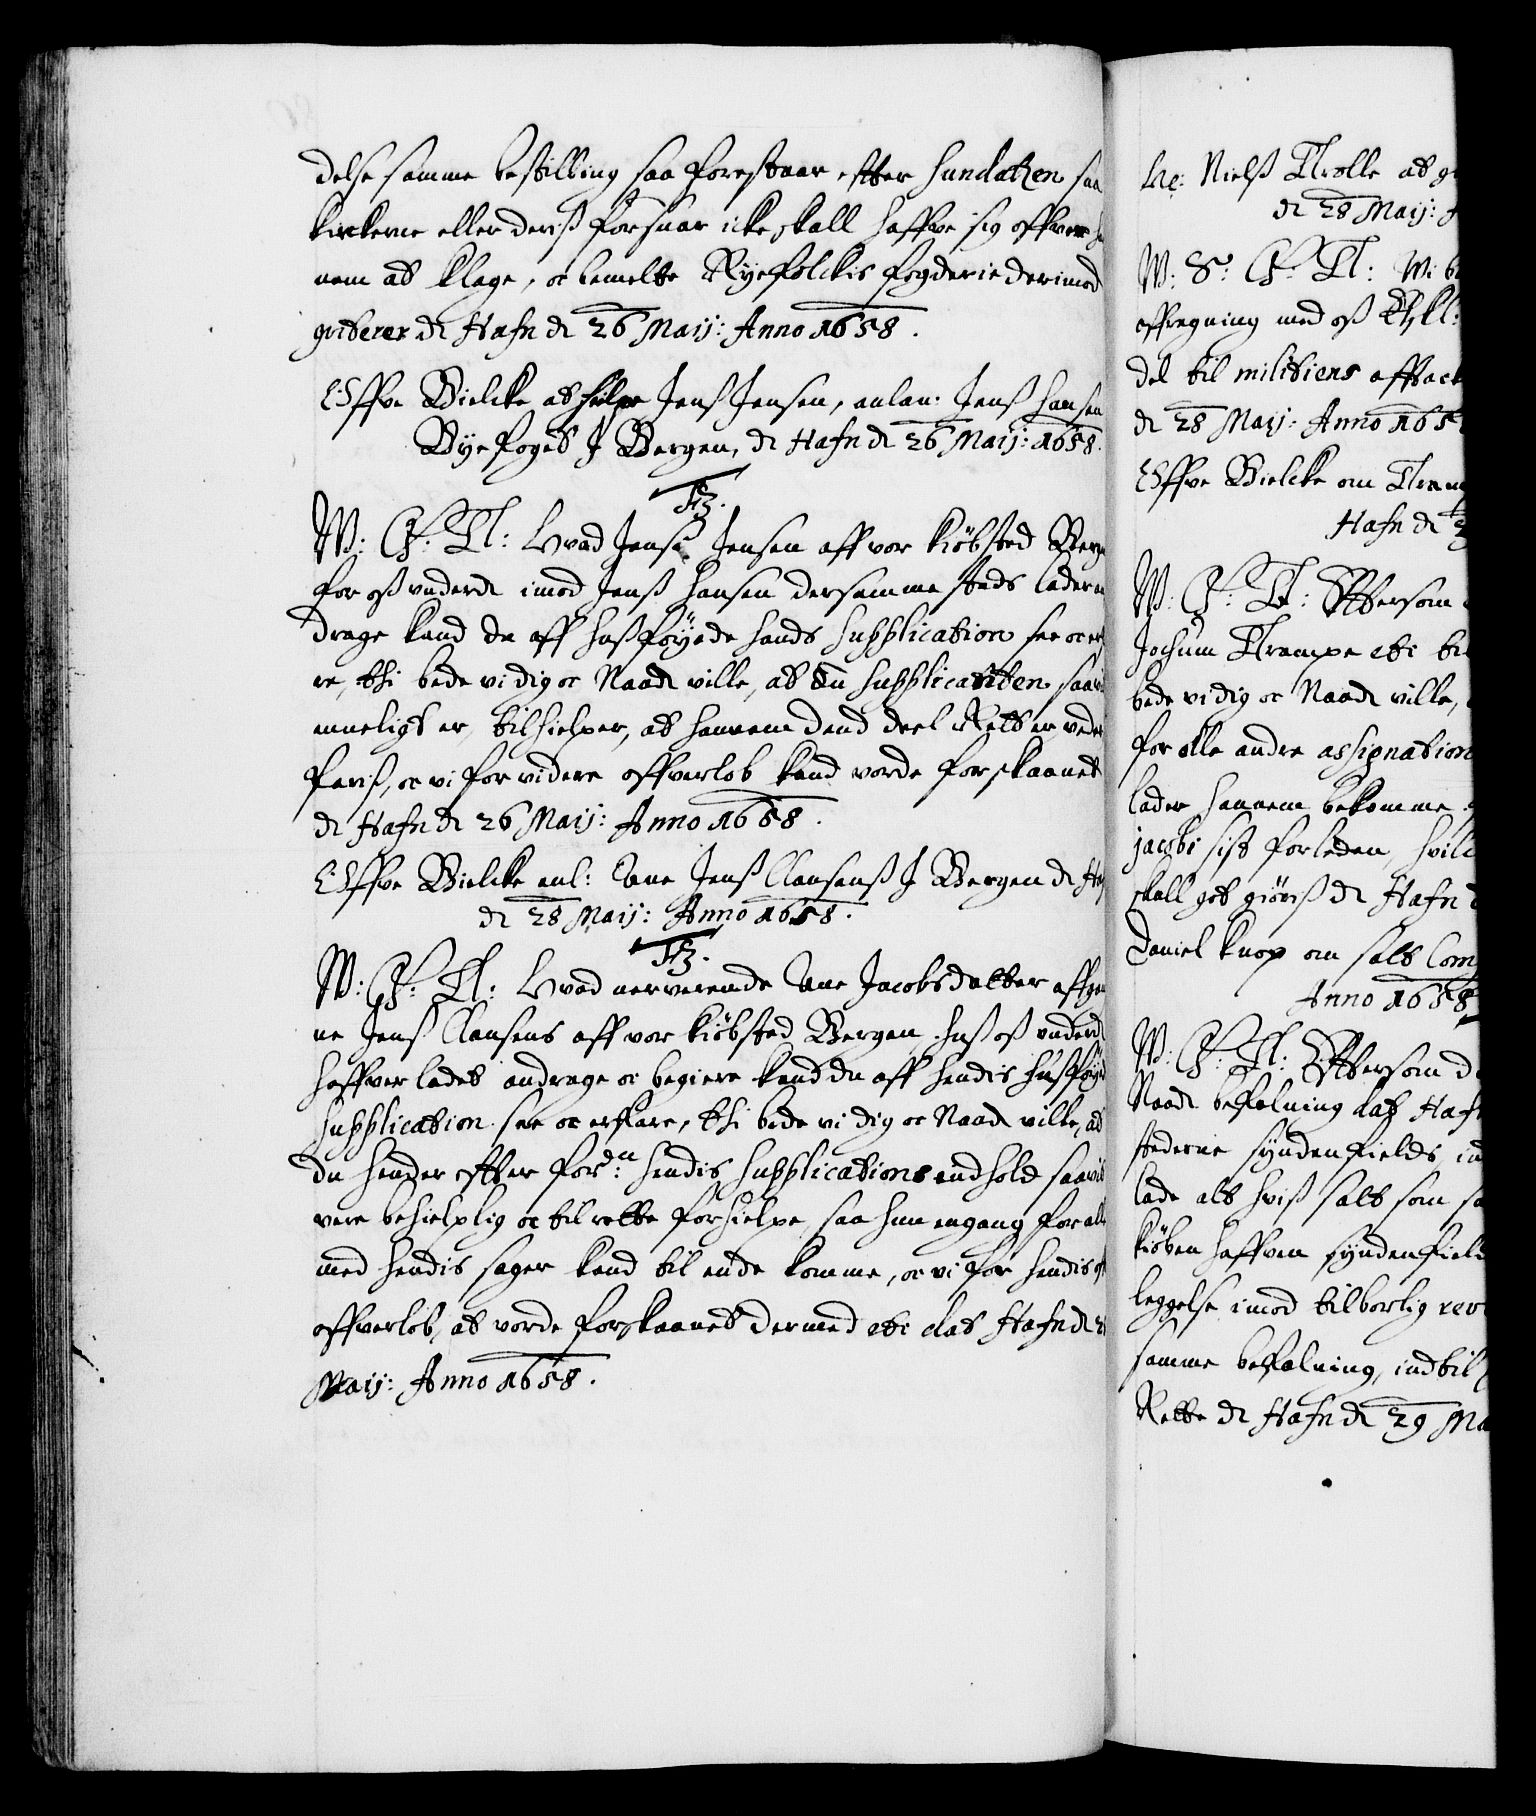 delse samme bestilling saa forestaar efter fundatzen saa
kirkerne eller deris forsuar icke skall haffve sig offver ha
nem at klage, oc bemelte Ryefolckis fogderie derimod
qvitterer dt Hafn dt 26 Maij: Anno 1658.
Offve Bielcke at hielpe Jens Jensen, anlan: Jens Hansen
Byefoget J Bergen, dt Hafn dt 26 Maij: 1658.
F3.
W: G: T: Hvad Jens Jensen aff vor kiöbsted Berge
for oss underdt imod Jens Hansen dersammesteds lader a
drage kand du aff hosföyede hands supplication see oc erf
re, thi bede vi dig oc Naadt ville, at du supplicanten saavi
mueligt er, tilhielper, at hannem dend deel Rett er veder
faris, oc vi for videre offverlob kand vorde forskaanet
dt Hafn dt 26 Maij: Anno 1658.
Offve Bielcke anl: Ane Jens Clausens J Bergen dt Haf
dt 28 Maij: Anno 1658.
F3.
W: G: T: Hvad nerverende Ane Jacobsdatter affgan
ne Jens Clausens aff vor kiöbsted Bergen hos oss underdt
haffver ladet andrage oc begiere kand du aff hendis hosföyed
supplication see oc erfare, thi bede vi dig oc Naadt ville, at
du hender efter fordn: hendis supplications indhold saavit
vere behielplig oc til rette forhielpe, saa hun engang for alle
med hendis sager kand til ende komme, oc vi for hendis of
offverlob, at vorde forskaanet dermed etc dat Hafn dt 28
Maij: Anno 1658.
He: Niels Trolle at g
dt 28 Maij:
W: S: G: T: Wi b
affregning med oss
del til militiens afftack
dt 28 Maij: Anno 165
Offve Bielcke om Tram
Hafn dt
W: G: T: Efftersom
Jochum Trampe etc til
bede vi dig oc Naadt ville,
for alle andre assignation
lader hannem bekomme
jacobi sist forleden, hvilc
skall got giöris dt Hafn
Daniel Knop om salt Com
Anno 1658
W: G: T: Efftersom d
Naadt befalning dat Haf
stederne syndenfields in
lade alt hvis salt som sa
kiöben haffven syndenfield
leggelse imod tilborlig rev
samme befalning, indtil
Rette dt Hafn dt 29 Ma